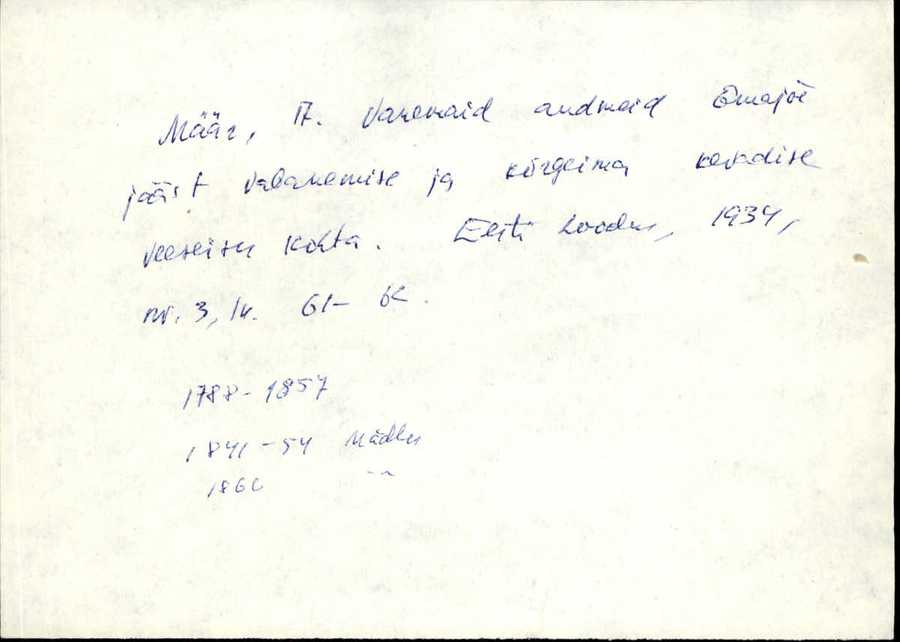 Määr, A. Vanemaid andmeid Emajõe
jääst vabanemise ja kõrgeima kevadise
veeseisu kohta. Eesti Loodus, 1934,
nr. 3, lk. 61-
1788-1857
1841-54 Mädler
186